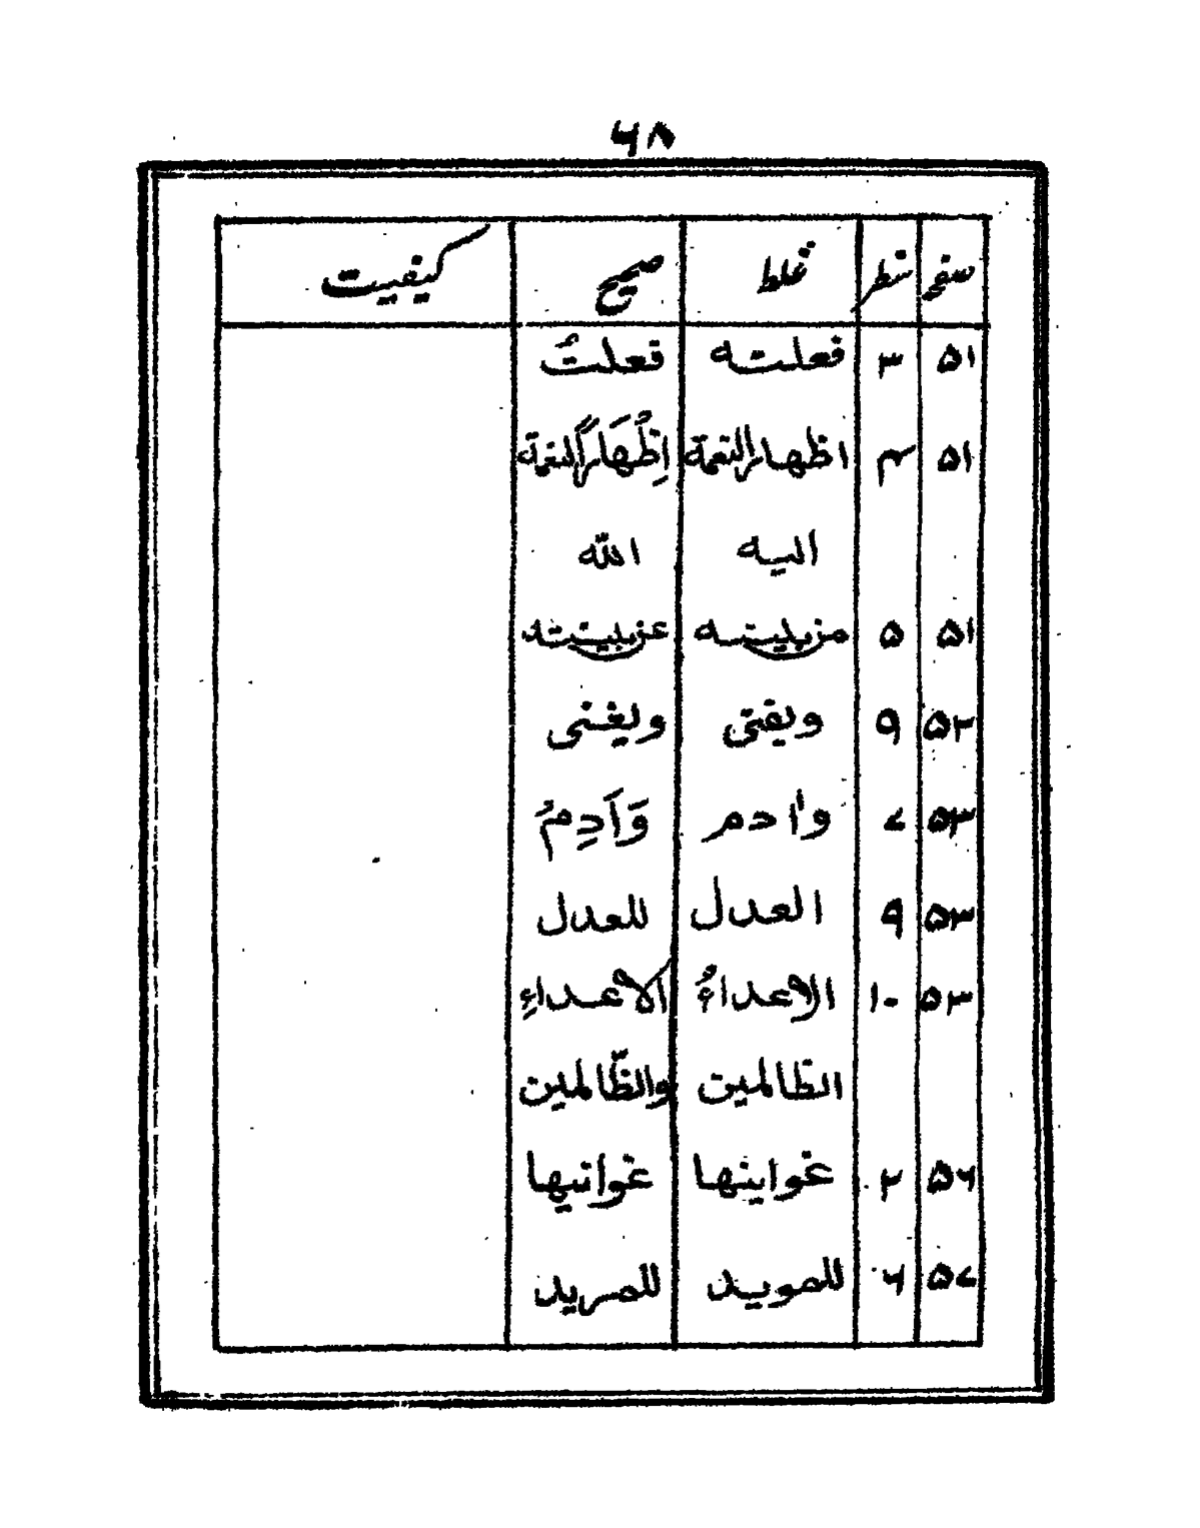 ۶۸
صفحہ سطر غلط صحیح کیفیت
۵۱ ۳ فعلته فعلتُ
۵۱ ۴ اظهارالنعمة اِظْهَاراًلنعمة
اليه الله
۵۱ ۵ مزيلينه عزبينته
۵۲ ۹ ويفتى ويغنى
۵۳ ۷ وادم وَاَدِمْ
۵۳ ۹ العدل للعدل
۵۳ ۱۰ الاعداءُ الاعداءِ
الظالمين والظّالمين
۵۶ ۲ غواينها غوانيها
۵۷ ۶ للمويد للمريد